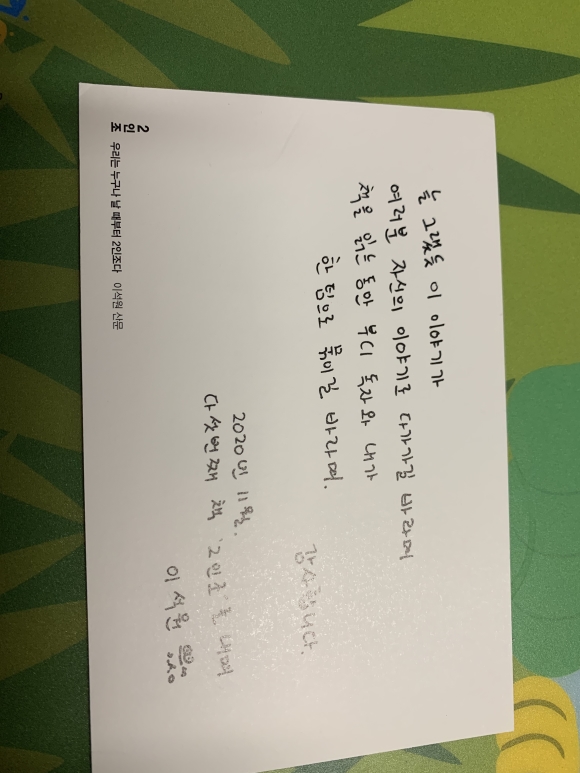 늘 그랬듯 이 이야기가
여러분 자신의 이야기로 다가가길 바라며
책을 읽는 동안 부디 독자와 내가
한 팀으로 묶이길 바라며.
감사합니다.
2020년 11월.
다섯번째 책 '2인조'를 내며
이석원
2인조
우리는 누구나 날 때부터 2인조다 이석원 산문